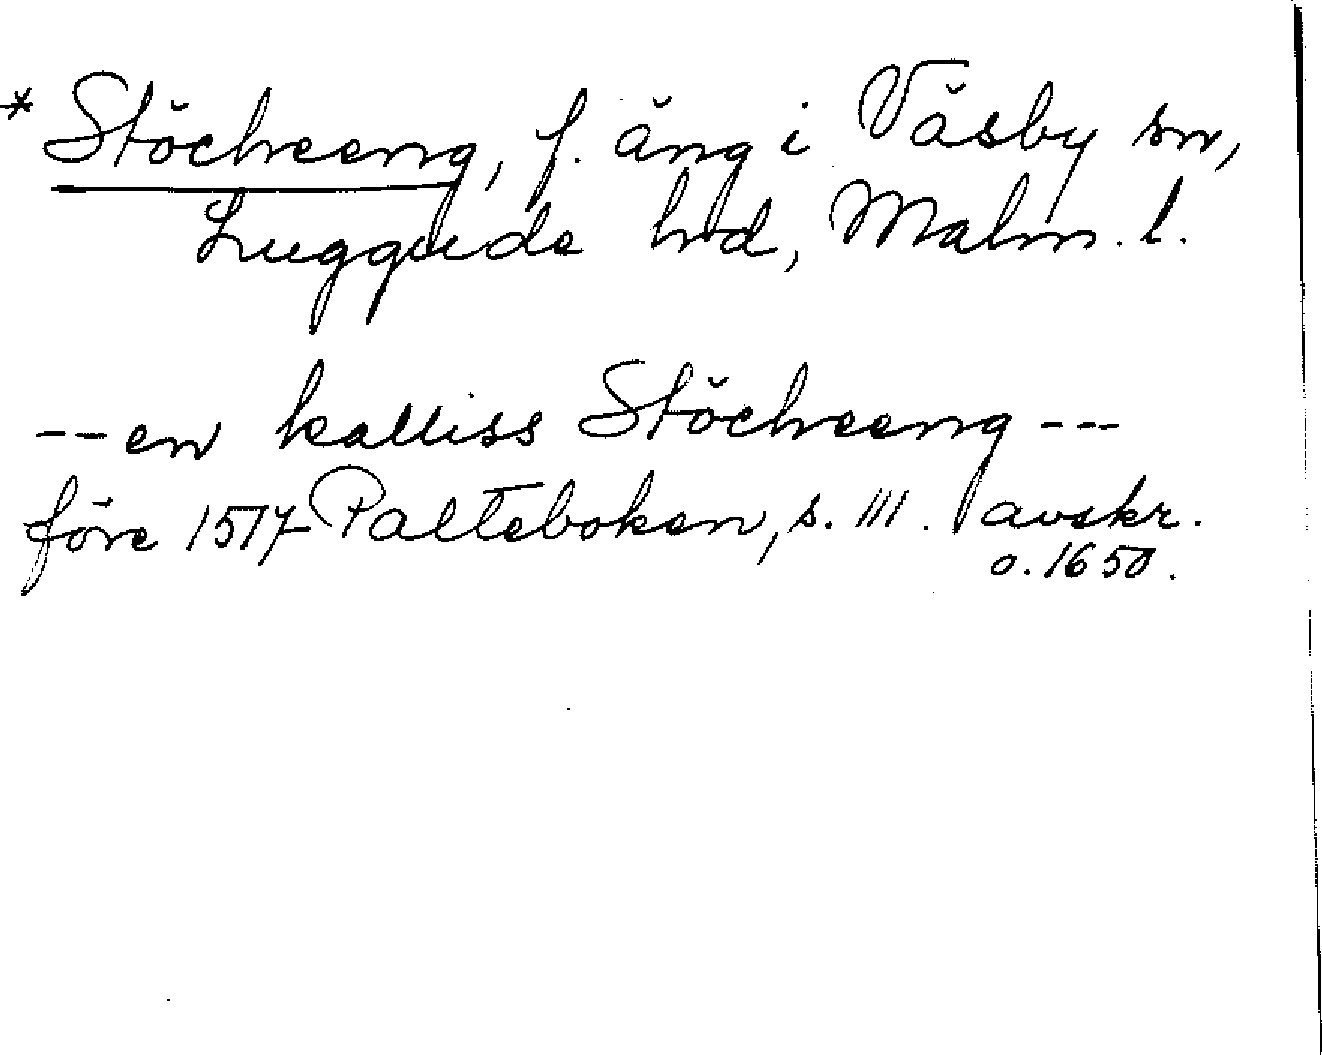 * Stöchreeng, f. äng i Väsby sn,
Luggude hrd, Malm. l.
-- en kalliss Stöchreeng ---
före 1517 Palteboken, s. 111. avskr.
o. 1650.